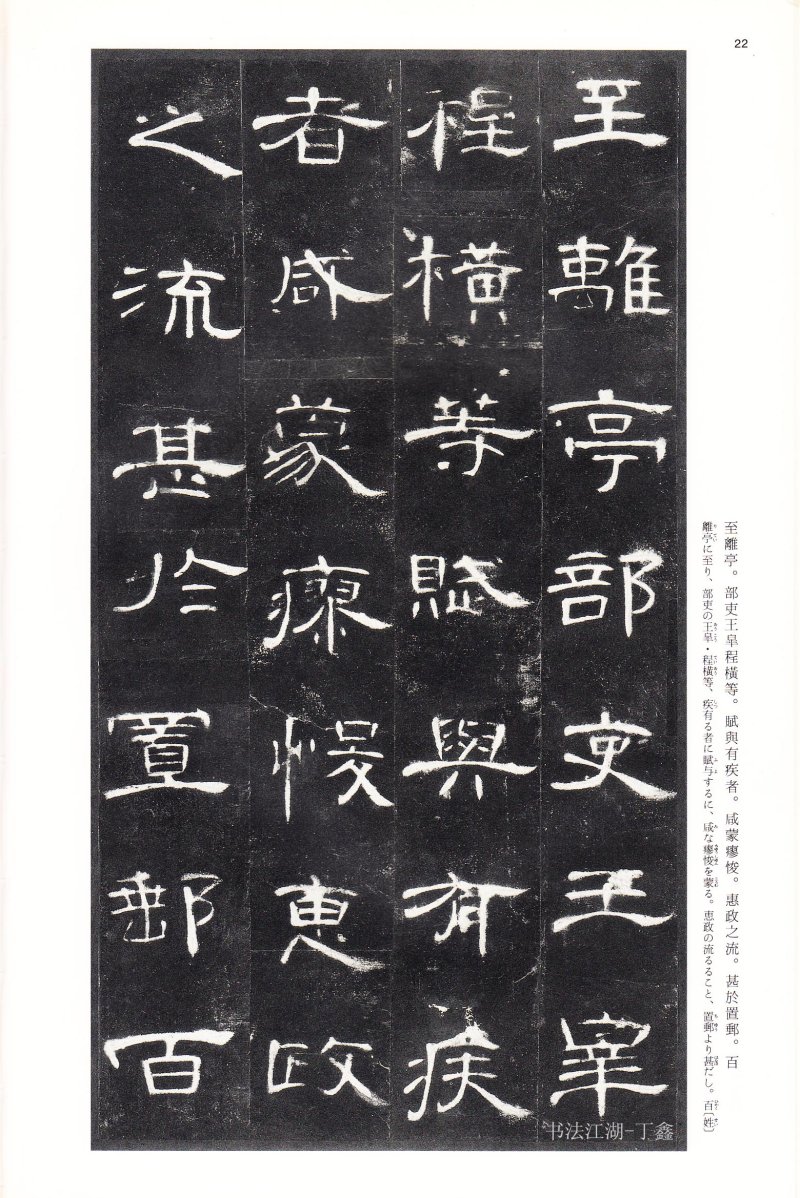 22
至離亭部吏王睾
程橫等賦與有疾
者咸蒙瘳悛惠政
之流甚於置郵百
至離亭。部吏王皐程橫等。賦與有疾者。咸蒙瘳悛。惠政之流。甚於置郵。百
離亭に至り、部吏の王皐・程橫等、疾有る者に賦与するに、咸な瘳悛を蒙る。恵政の流るること、置郵より甚だし。百〔姓〕
书法江湖-丁鑫